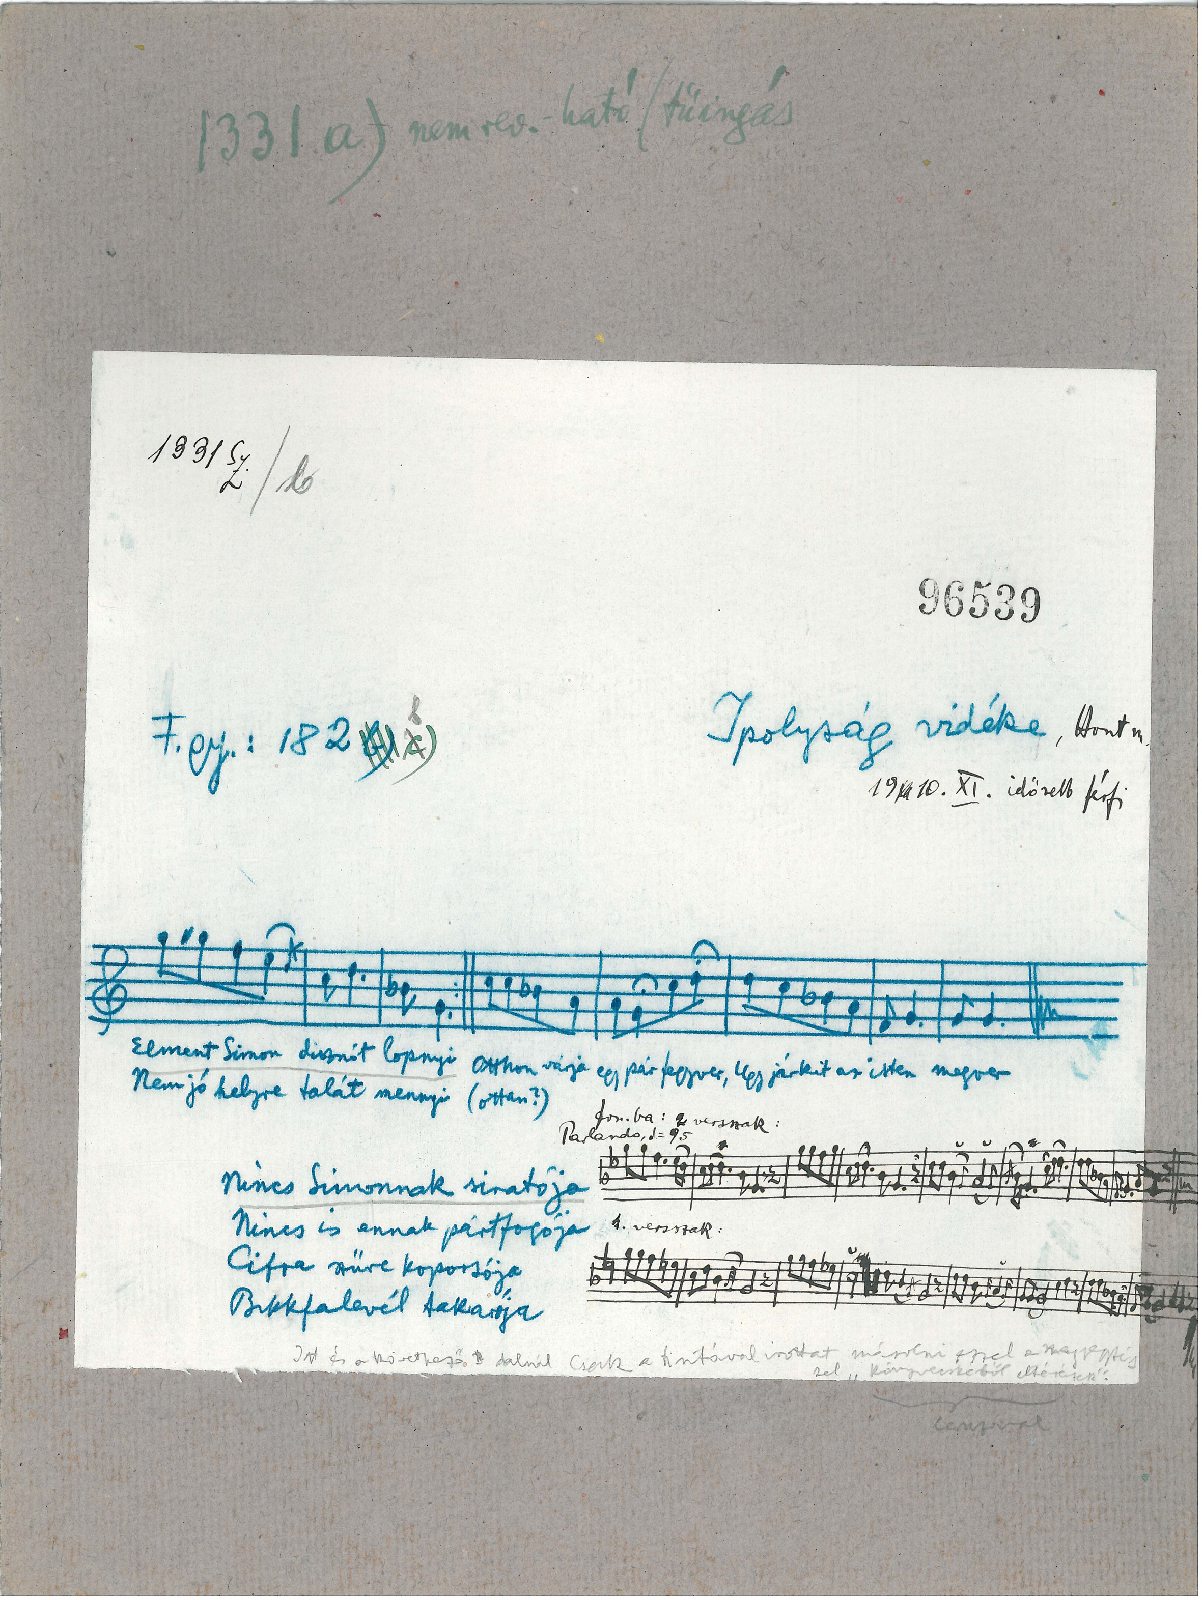 1331 a) nem rev.-ható/tűingás
1331 Sz. /b
96539
F. gy.: 182 b)
Ipolyság vidéke, Hont m.
1910. XI. idősebb férfi
Elment Simon disznót lopnyi Otthon várja egy pár fegyver, Úgy járkit az isten megver
Nem jó helyre talát mennyi (ottan?)
fon.ba: 2 versszak:
Parlando, ♩= 95
Nincs Simonnak siratója
Nincs is annak pártfogója
Cifra szüre koporsója
Bikkfalevél takarója
1. versszak:
Itt és a következő dalnál csak a tintával írottat másolni ezzel a megjegyzés
sel "könyvecskéből eltérések".